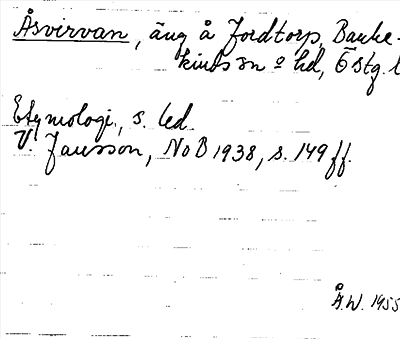 Åsvirvan, äng å Fordtorp, Banke-
kinds sn o hd, Östg. l
Etymologi, s. led
V. Jansson, NoB 1938, s. 149 ff.
Å.W. 1955